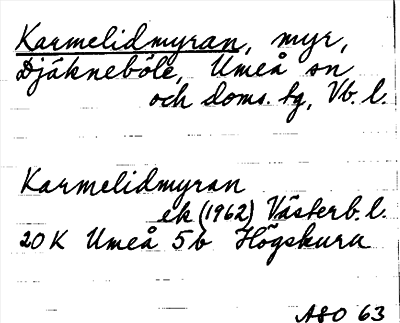 Karmelidmyran, myr,
Djäkneböle, Umeå sn
och doms. tg, Vb. l.
Karmelidmyran
ek (1962) Västerb. l.
20K Umeå 5b Högskuru
ASO 63